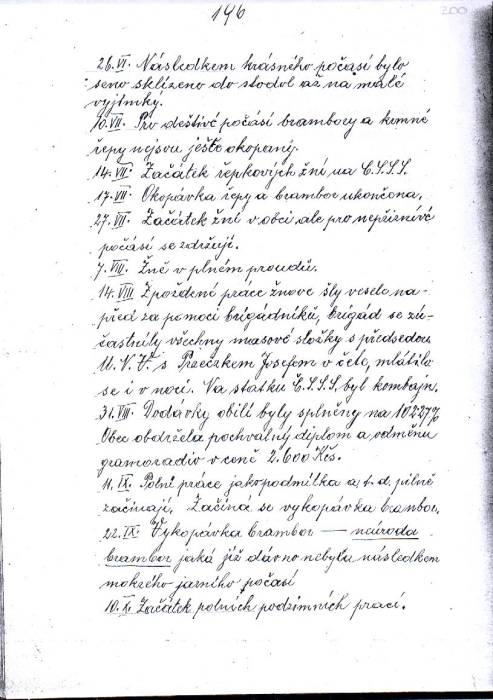 196
200
26.VI. Následkem krásného počasí bylo
seno sklizeno do stodol až na malé
vyjímky.
10.VII. Pro deštivé počasí brambory a krmné
řepy nejsou ještě okopány.
14.VII. Začátek řepkových žní na Č.S.S.S.
17.VII. Okopávka řepy a brambor ukončena,
27.VII. Začátek žní v obci ale pro nepříznivé
počasí se zdržují.
7.VIII. Žně v plném proudů.
14.VIII Zpoždění práce žnové šly vesele na-
před za pomoci brigádníků, brigád se zú-
častnily všechny masové složky s předsedou
M.N.V. s Josefem v čele, mlátilo
se i v noci. Na statku Č.S.S.S. byl kombajn.
31.VIII. Dodávky obilí byly splněny na 102.27%
Obec obdržela pochvalný diplom a odměnu
gramoradio v ceně 2.600 Kčs.
11.IX. Polní práce jako podmítka a.t.d. pilně
začínají, Začíná se vykopávka brambor.
22.IX. Vykopávka brambor — neúroda
brambor jaká již dávno nebyla následkem
mokrého jarního počasí
10.X. Začátek polních podzimních prací.